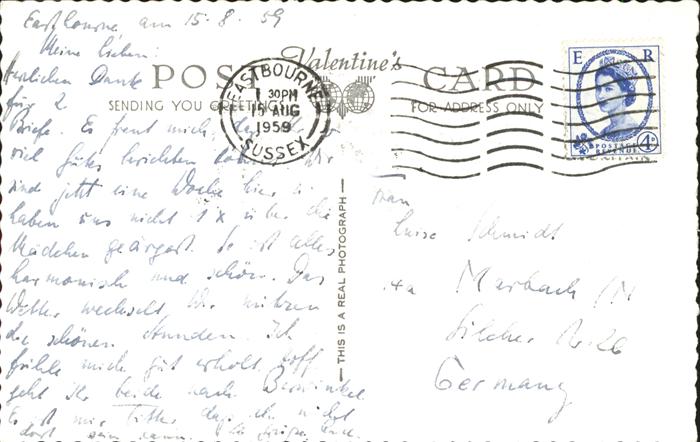 Eastbourne, am 15.8.59
Meine Lieben!
Herzlichen Dank
für 2
Briefe. Es freut mich, daß
viel gutes berichten
sind jetzt eine Woche hier u.
haben uns nicht 1 x über die
Mädchen geärgert. Es ist alles
harmonisch und schön. Das
Wetter wechselt. Wir nützen
die schönen Stunden. Ich
fühle mich gut erholt.
geht Ihr beide nach
Es ist mir bitter, daß ich nicht
dort sein kann.
POST CARD
Valentine's
SENDING YOU GREETINGS
FOR ADDRESS ONLY
THIS IS A REAL PHOTOGRAPH
EASTBOURNE
1 30PM
15 AUG
1959
SUSSEX
E R
POSTAGE
REVENUE
4D
Frau
Luise Schmidt
Marbach /N
Silcher Str. 26
Germany